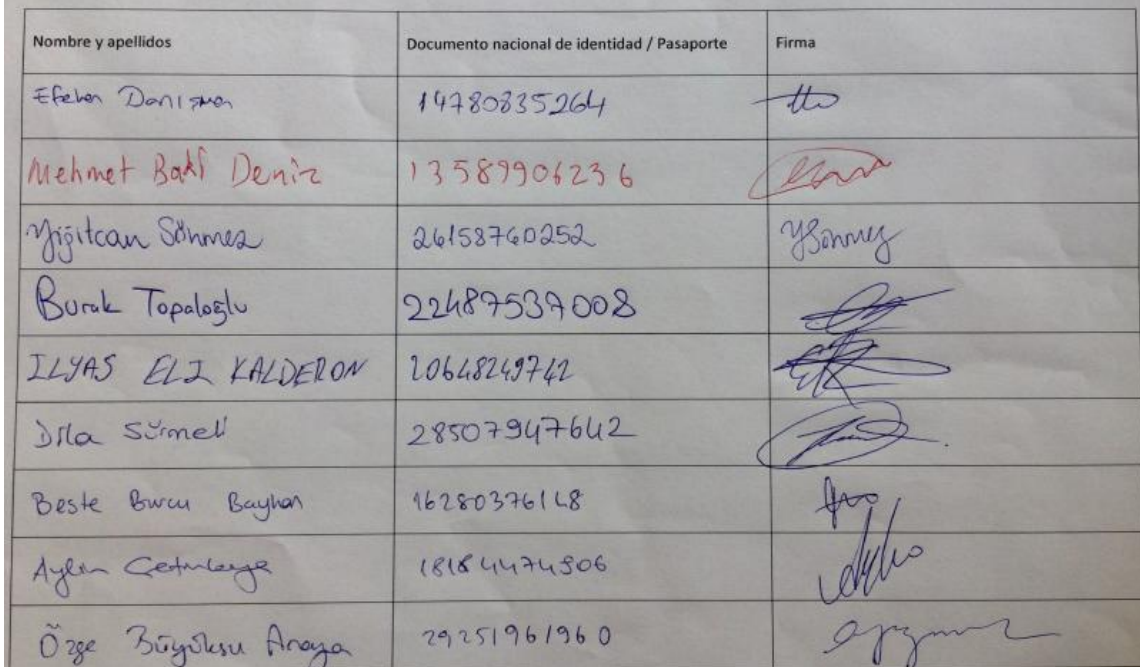 Nombre y apellidos Documento nacional de identidad / Pasaporte Firma
Efehan Danışman 14780835264
Mehmet Baki Deniz 13589906236
Yiğitcan Sönmez 26158760252 YSönmez
Burak Topaloğlu 22487537008
ILYAS ELI KALDERON 20648249742
Dila Sürmeli 28507947642
Beste Burcu Bayhan 16280376148
Aylin Çetinkaya 18184474906
Özge Büyüksu Anaya 29251961960